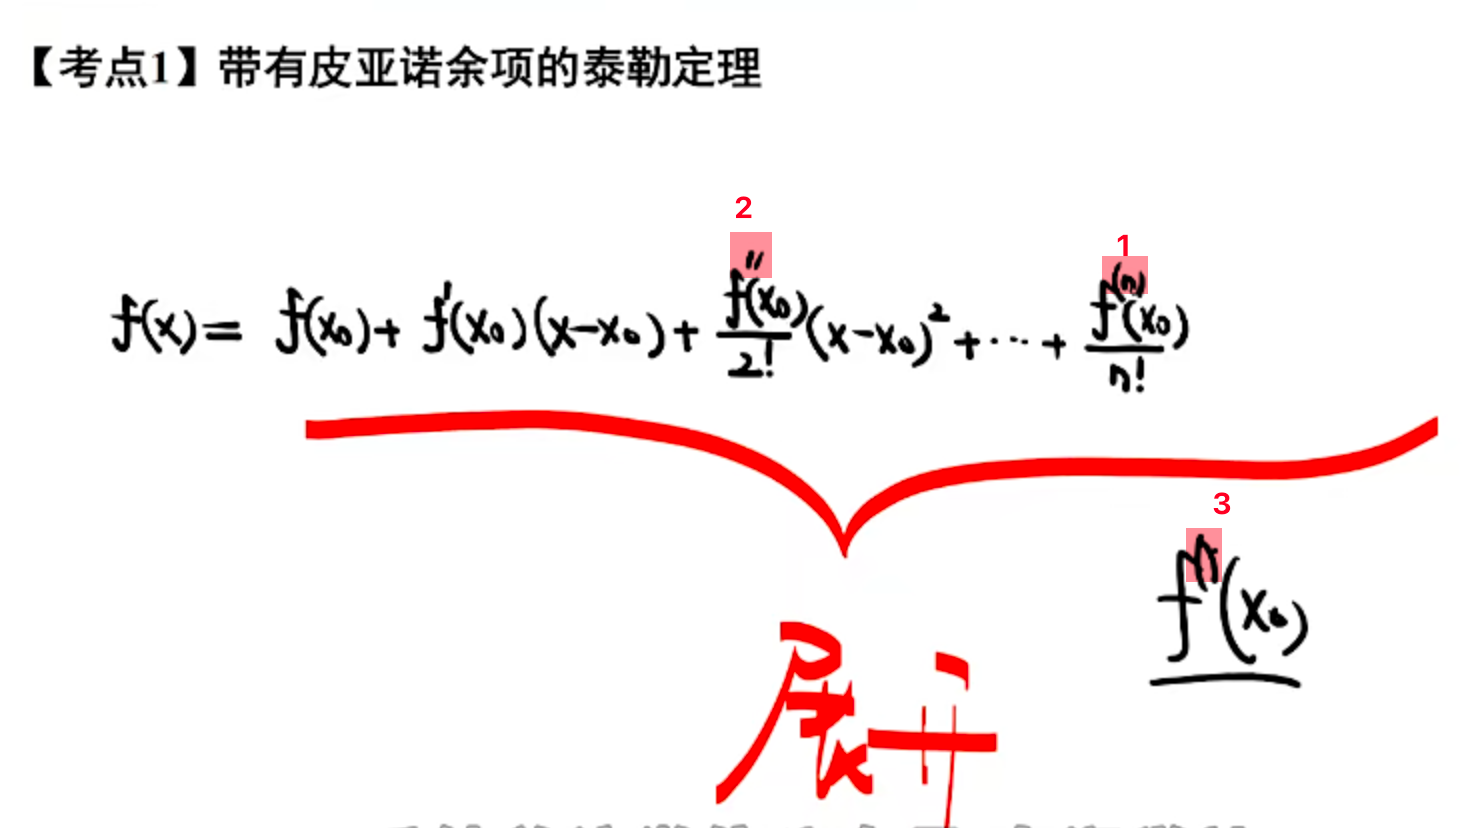 【考点1】带有皮亚诺余项的泰勒定理
2
1
f(x)= f(x₀)+ f'(x₀)(x-x₀)+ f''(x₀)/2! (x-x₀)²+⋯+ f⁽ⁿ⁾(x₀)/n!
3
fⁿ(x₀)
展开